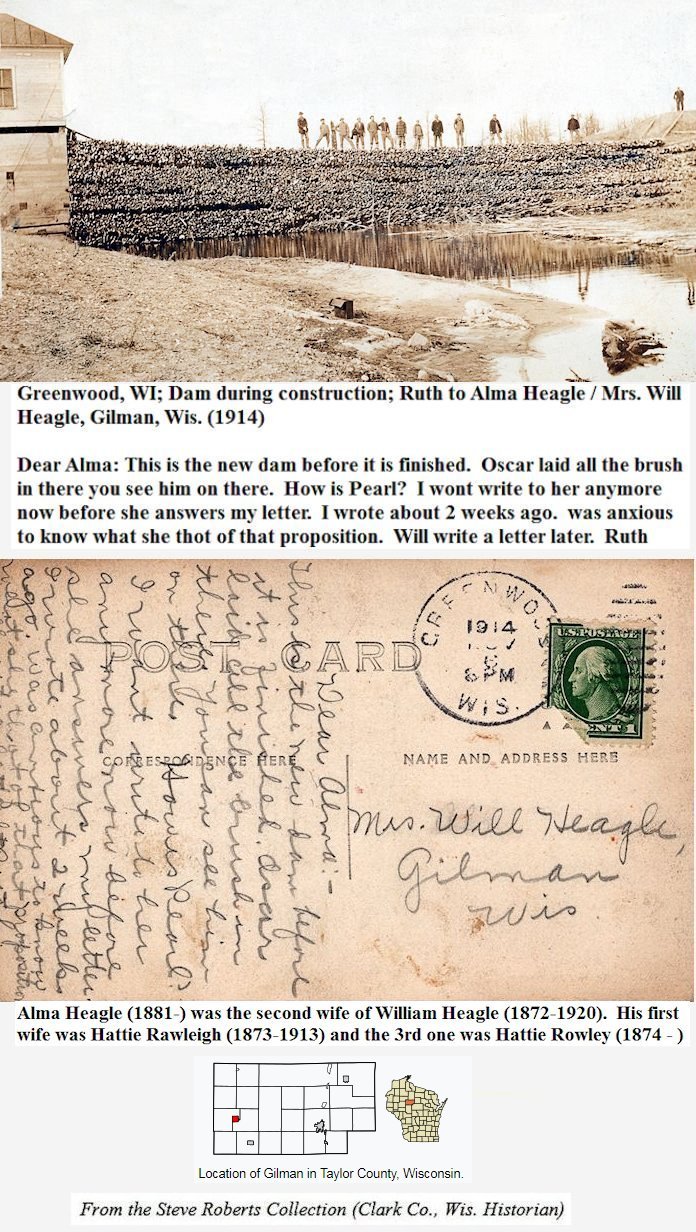 Greenwood, WI; Dam during construction; Ruth to Alma Heagle / Mrs. Will
Heagle, Gilman, Wis. (1914)
Dear Alma: This is the new dam before it is finished.  Oscar laid all the brush
in there you see him on there.  How is Pearl?  I wont write to her anymore
now before she answers my letter.  I wrote about 2 weeks ago.  was anxious
to know what she thot of that proposition.  Will write a letter later.  Ruth
POST CARD
CORRESPONDENCE HERE
Dear Alma:-
This is the new dam before
it is finished. Oscar
laid all the brush in
there. You can see him
on there. How is Pearl?
I wont write to her
anymore now before
she answers my letter.
I wrote about 2 weeks
ago. was anxious to know
what she thot of that proposition
GREENWOOD
1914
6 PM
WIS.
U.S. POSTAGE
NAME AND ADDRESS HERE
Mrs. Will Heagle,
Gilman
Wis.
Alma Heagle (1881-) was the second wife of William Heagle (1872-1920).  His first
wife was Hattie Rawleigh (1873-1913) and the 3rd one was Hattie Rowley (1874 - )
Location of Gilman in Taylor County, Wisconsin.
From the Steve Roberts Collection (Clark Co., Wis. Historian)